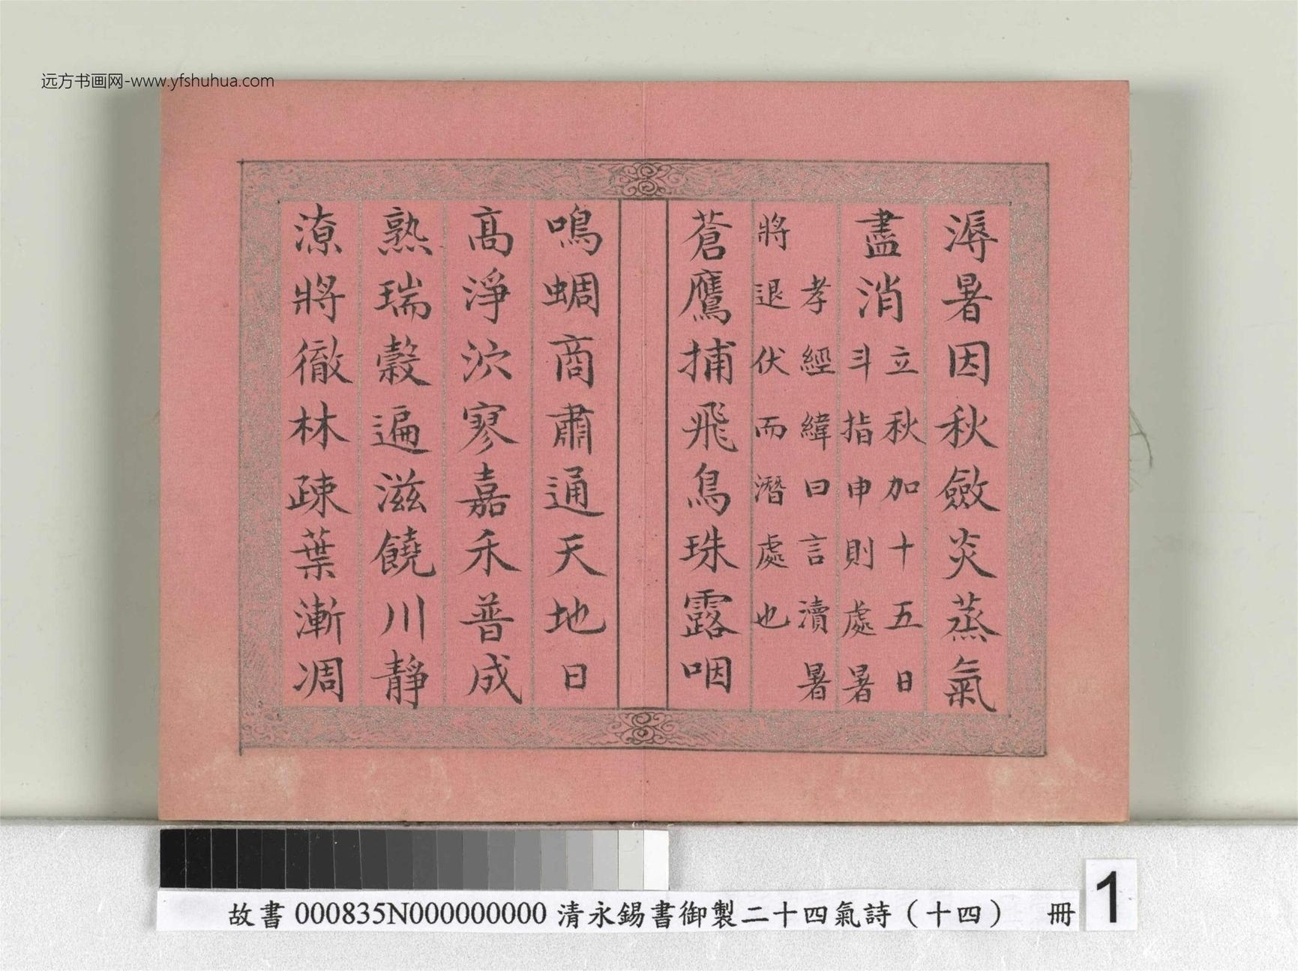 远方书画网-www.yfshuhua.com
溽暑因秋斂炎蒸氣
盡消
立秋加十五日
斗指申則處暑
孝經緯曰言瀆暑
將退伏而潛處也
蒼鷹捕飛鳥珠露咽
鳴蜩商肅通天地日
高淨泬寥嘉禾普成
熟瑞穀遍滋饒川靜
潦將徹林疎葉漸凋
故書 000835N000000000 清永錫書御製二十四氣詩（十四） 冊
1